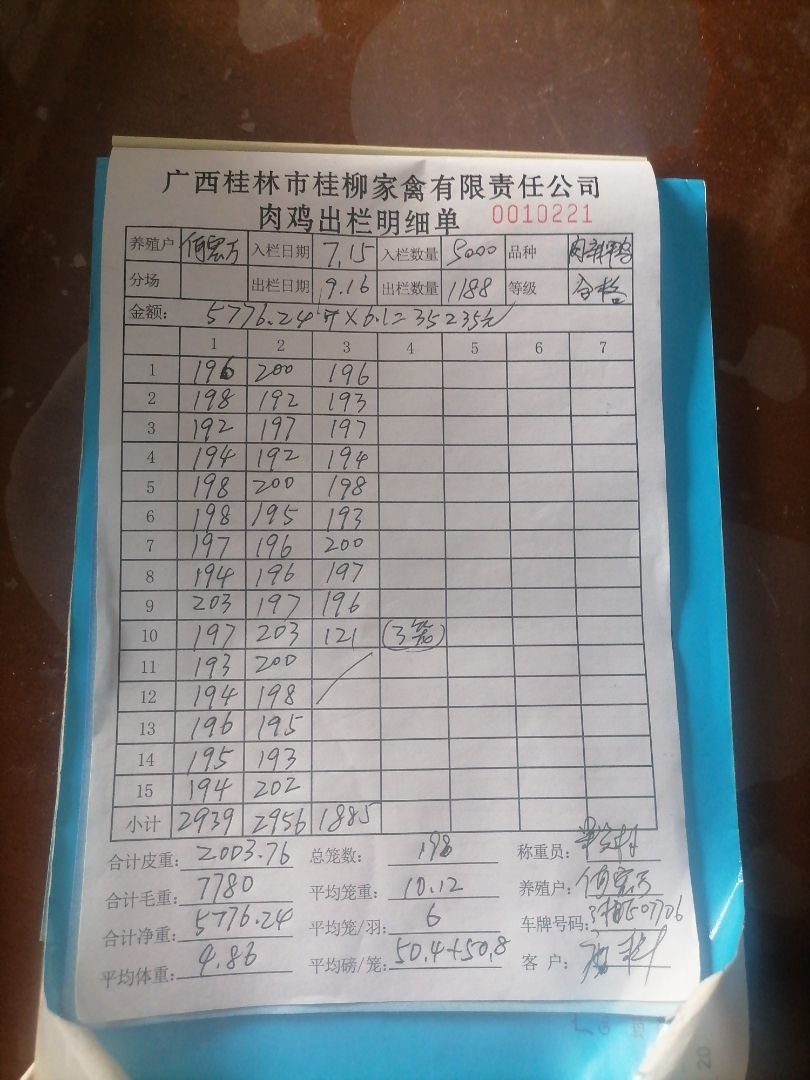 广西桂林市桂柳家禽有限责任公司
肉鸡出栏明细单 0010221
养殖户 何宏方 入栏日期 7.15 入栏数量 5000 品种
分场 出栏日期 9.16 出栏数量 1188 等级 合格
金额: 5776.24斤×6.1=35235元
1 2 3 4 5 6 7
1 196 200 196
2 198 192 193
3 192 197 197
4 194 192 194
5 198 200 198
6 198 195 193
7 197 196 200
8 194 196 197
9 203 197 196
10 197 203 121 (3笼)
11 193 200
12 194 198
13 196 195
14 195 193
15 194 202
小计 2939 2956 1885
合计皮重: 2003.76 总笼数: 198 称重员:
合计毛重: 7780 平均笼重: 10.12 养殖户:
合计净重: 5776.24 平均笼/羽: 6 车牌号码:
平均体重: 4.86 平均磅/笼: 50.4+50.8 客 户: